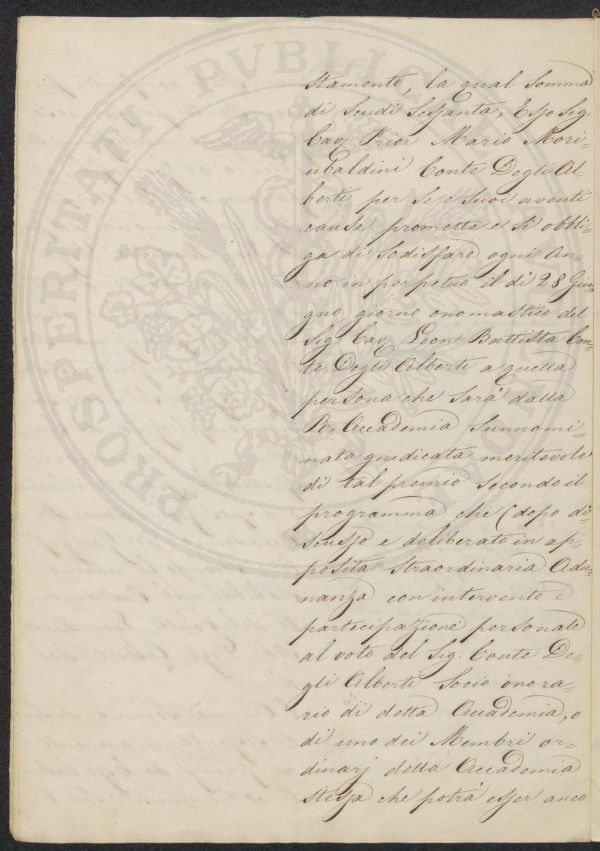 stamento, la qual Somma
di Scudi Sessanta, Esso Sig:
Cav: Prior Mario Mori
ubaldini Conte Degli Al=
berti per Se e Suoi aventi
causa promette e si obbli=
ga di Sodisfare ogni An=
no in perpetuo il dì 28 Giu
gno giorno onomastico del
Sig: Cav: Leon Battista Con
te Degli Alberti a quella
persona che Sarà dalla
R: Accademia Sunnomi=
nata giudicata meritevole
di tal premio Secondo il
programma che (dopo di=
scusso e deliberato in ap=
posita Straordinaria Adu=
nanza con intervento e
partecipazione personale
al voto del Sig: Conte De=
gli Alberti Socio onora=
rio di detta Accademia, o
di uno dei Membri or=
dinarj della Accademia
stessa che potrà esser anco
PROSPERITATI PVBLICAE